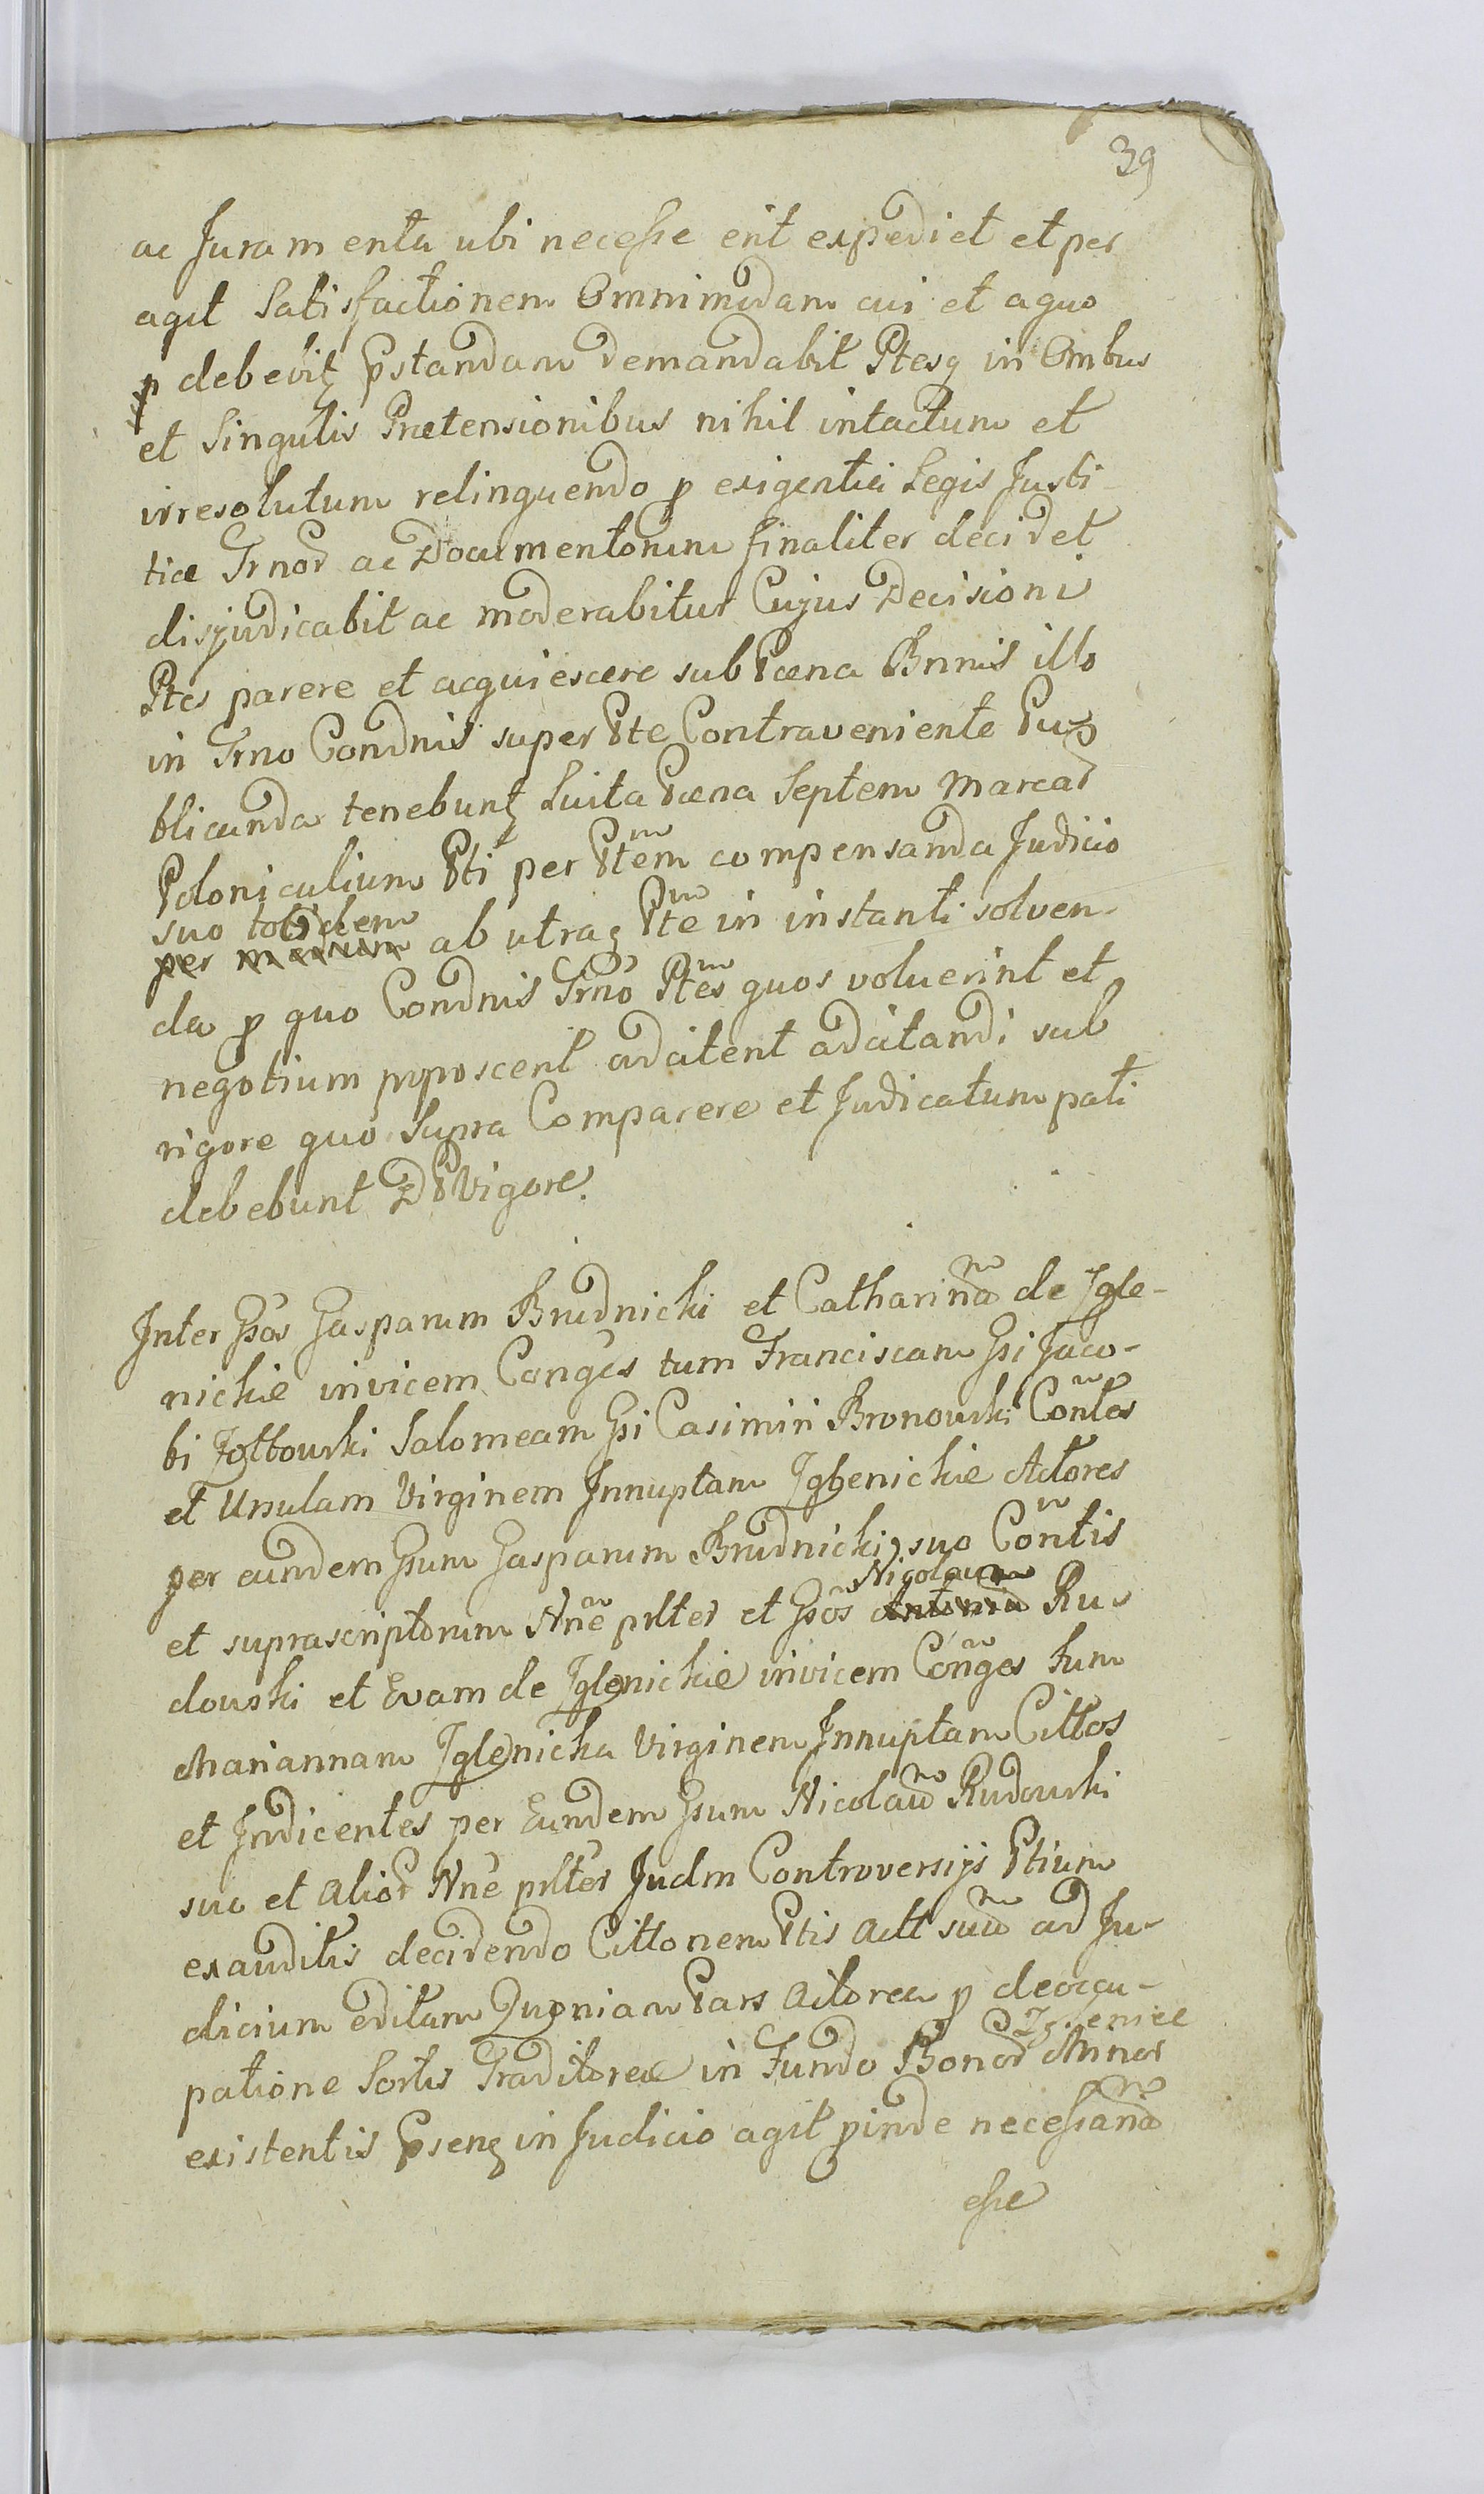 39
ac Juramenta ubi necesse erit expediet et per
aget Satisfactionem Omnimodam cui et a quo
p debebitq pstandam demandabit Ptesq in Ombus
et Singulis Praetensionibus nihil intactum et
irresolutum relinquendo p exigentia Legis Justi-
tiae Trnor ac Documentorum finaliter decidet
disjudicabit ac moderabitur Cujus Decisioni
Ptes parere et acquiescere sub Paena Bnnis illo
in Trno Condnis super Pte Contraveniente Pu-
blicanda tenebuntq Luita Paena Septem Marcar
Poloniculium Pti per Ptem compensanda Judicio
suo totidem
per ab utraq Pte in instanti solven-
da p quo Condnis Trno Ptes quos voluerint et
negotium poposcerit adcitent adcitandi sub
rigore quo Supra Comparere et Judicatum pati
debebunt DP Vigore.
Inter Gsos Gasparum Brudnicki et Catharina de Igle-
nickie invicem Conges tum Franciscam Gsi Jaco-
bi Salomeam Gsi Casimiri Bronowski Contes
et Ursulam Virginem Innuptam Iglenickie Actores
per eundem Gsum Gasparum Brudnicki suo Contis
et suprascriptorum Nne prlter et Gsos Nicolaum Ru-
dowski et Evam de Iglenickie invicem Conges tum
Mariannam Iglenicka Virginem Innuptam Cittos
et Indicentes per Eundem Gsum Nicolau Rudowski
suo et Alior Nne prlter Judm Controversijs Ptium
exauditis decidendo Cittonem Ptis Act sua ad Ju-
dicium editam Quoniam Pars Actorea p deoccu-
patione Sortis Traditorea in Fundo Bonor
existentis Psenq in Judicio agit pinde necessaria
esse